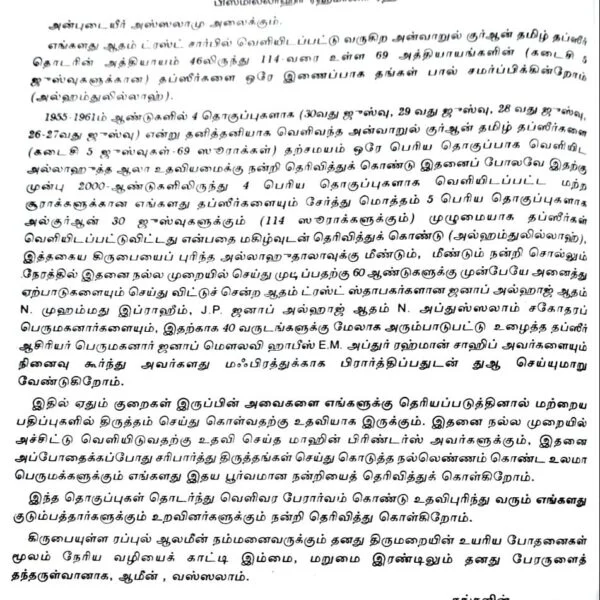 பிஸ்மில்லாஹிர்
அன்புடையீர் அஸ்ஸலாமு அலைக்கும்.
எங்களது ஆதம் ட்ரஸ்ட் சார்பில் வெளியிடப்பட்டு வருகிற அன்வாறுல் குர்ஆன் தமிழ் தப்ஸீர்
தொடரின் அத்தியாயம் 46லிருந்து 114-வரை உள்ள 69 அத்தியாயங்களின் (கடைசி 5
ஜுஸ்வுகளுக்கான) தப்ஸீர்களை ஒரே இணைப்பாக தங்கள் பால் சமர்ப்பிக்கின்றோம்
(அல்ஹம்துலில்லாஹ்).
1955-1961ம் ஆண்டுகளில் 4 தொகுப்புகளாக (30வது ஜுஸ்வு, 29 வது ஜுஸ்வு, 28 வது ஜுஸ்வு,
26-27வது ஜுஸ்வு) என்று தனித்தனியாக வெளிவந்த அன்வாறுல் குர்ஆன் தமிழ் தப்ஸீர்களை
(கடைசி 5 ஜுஸ்வுகள்-69 ஸூராக்கள்) தற்சமயம் ஒரே பெரிய தொகுப்பாக வெளியிட
அல்லாஹுத்த ஆலா உதவியமைக்கு நன்றி தெரிவித்துக் கொண்டு இதனைப் போலவே இதற்கு
முன்பு 2000-ஆண்டுகளிலிருந்து 4 பெரிய தொகுப்புகளாக வெளியிடப்பட்ட மற்ற
சூராக்களுக்கான எங்களது தப்ஸீர்களையும் சேர்த்து மொத்தம் 5 பெரிய தொகுப்புகளாக
அல்குர்ஆன் 30 ஜுஸ்வுகளுக்கும் (114 ஸூராக்களுக்கும்) முழுமையாக தப்ஸீர்கள்
வெளியிடப்பட்டுவிட்டது என்பதை மகிழ்வுடன் தெரிவித்துக் கொண்டு (அல்ஹம்துலில்லாஹ்),
இத்தகைய கிருபையைப் புரிந்த அல்லாஹுதாலாவுக்கு மீண்டும், மீண்டும் நன்றி சொல்லும்
நேரத்தில் இதனை நல்ல முறையில் செய்து முடிப்பதற்கு 60 ஆண்டுகளுக்கு முன்பேயே அனைத்து
ஏற்பாடுகளையும் செய்து விட்டுச் சென்ற ஆதம் ட்ரஸ்ட் ஸ்தாபகர்களான ஜனாப் அல்ஹாஜ் ஆதம்
N. முஹம்மது இப்ராஹீம், J.P. ஜனாப் அல்ஹாஜ் ஆதம் N. அப்துஸ்ஸலாம் சகோதரப்
பெருமகனார்களையும், இதற்காக 40 வருடங்களுக்கு மேலாக அரும்பாடுபட்டு உழைத்த தப்ஸீர்
ஆசிரியர் பெருமகனார் ஜனாப் மௌலவி ஹாபீஸ் E.M. அப்துர் ரஹ்மான் சாஹிப் அவர்களையும்
நினைவு கூர்ந்து அவர்களது மஃபிரத்துக்காக பிரார்த்திப்பதுடன் துஆ செய்யுமாறு
வேண்டுகிறோம்.
இதில் ஏதும் குறைகள் இருப்பின் அவைகளை எங்களுக்கு தெரியப்படுத்தினால் மற்றைய
பதிப்புகளில் திருத்தம் செய்து கொள்வதற்கு உதவியாக இருக்கும். இதனை நல்ல முறையில்
அச்சிட்டு வெளியிடுவதற்கு உதவி செய்த மாஹின் பிரிண்டர்ஸ் அவர்களுக்கும், இதனை
அப்போதைக்கப்போது சரிபார்த்து திருத்தங்கள் செய்து கொடுத்த நல்லெண்ணம் கொண்ட உலமா
பெருமக்களுக்கும் எங்களது இதய பூர்வமான நன்றியைத் தெரிவித்துக் கொள்கிறோம்.
இந்த தொகுப்புகள் தொடர்ந்து வெளிவர பேரார்வம் கொண்டு உதவிபுரிந்து வரும் எங்களது
குடும்பத்தார்களுக்கும் உறவினர்களுக்கும் நன்றி தெரிவித்து கொள்கிறோம்.
கிருபையுள்ள ரப்புல் ஆலமீன் நம்மனைவருக்கும் தனது திருமறையின் உயரிய போதனைகள்
மூலம் நேரிய வழியைக் காட்டி இம்மை, மறுமை இரண்டிலும் தனது பேரருளைத்
தந்தருள்வானாக, ஆமீன் , வஸ்ஸலாம்.